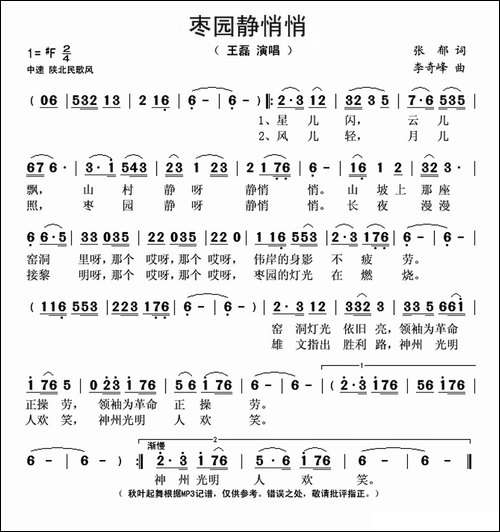 枣园静悄悄
（ 王磊 演唱 ）
1= #F 2/4
张 郁 词
中速 陕北民歌风
李奇峰 曲
( 06 532 13 | 2 16· | 6 - | 6 - ) |: 2·3 12 | 32 3 5 | 7·6 535 |
1、星 儿 闪， 云 儿
2、风 儿 轻， 月 儿
676· | 3·1 543 | 23 03 | 2 176 | 6 - | 16 1 2 | 32 3· |
飘， 山 村 静 呀 静悄 悄。山 坡 上 那 座
照， 枣 园 静 呀 静悄 悄。长 夜 漫 漫
6 6·5 | 33 035 | 22 035 | 22 035 | 116 553 | 2·3 176 | 6 - |
窑洞 里呀，那个 哎呀，那个 哎呀， 伟岸的身影 不 疲 劳。
接黎 明呀，那个 哎呀，那个 哎呀， 枣园的灯光 在 燃 烧。
( 116 553 | 223 176 | 6 - | 6 - ) | 2·3 12 | 332 3 | 33 5 661 |
窑 洞灯光 依旧 亮，领袖为革命
雄 文指出 胜利 路，神州 光明
i 76 5 | 023 i76 | 56 i 76 | 6 - | 6 - | ( 2·3 176 |
1
正操 劳， 领袖为革命 正 操 劳。
人欢 笑， 神州光明 人 欢 笑。
渐慢
2
6 - | 6 - ) :| 2·3 i76 | 56 i 76 | 6 - | 6 - | 6 - ||
神 州 光明 人 欢 笑。
（ 秋叶起舞根据MP3记谱，仅供参考。错误之处，敬请批评指正。）